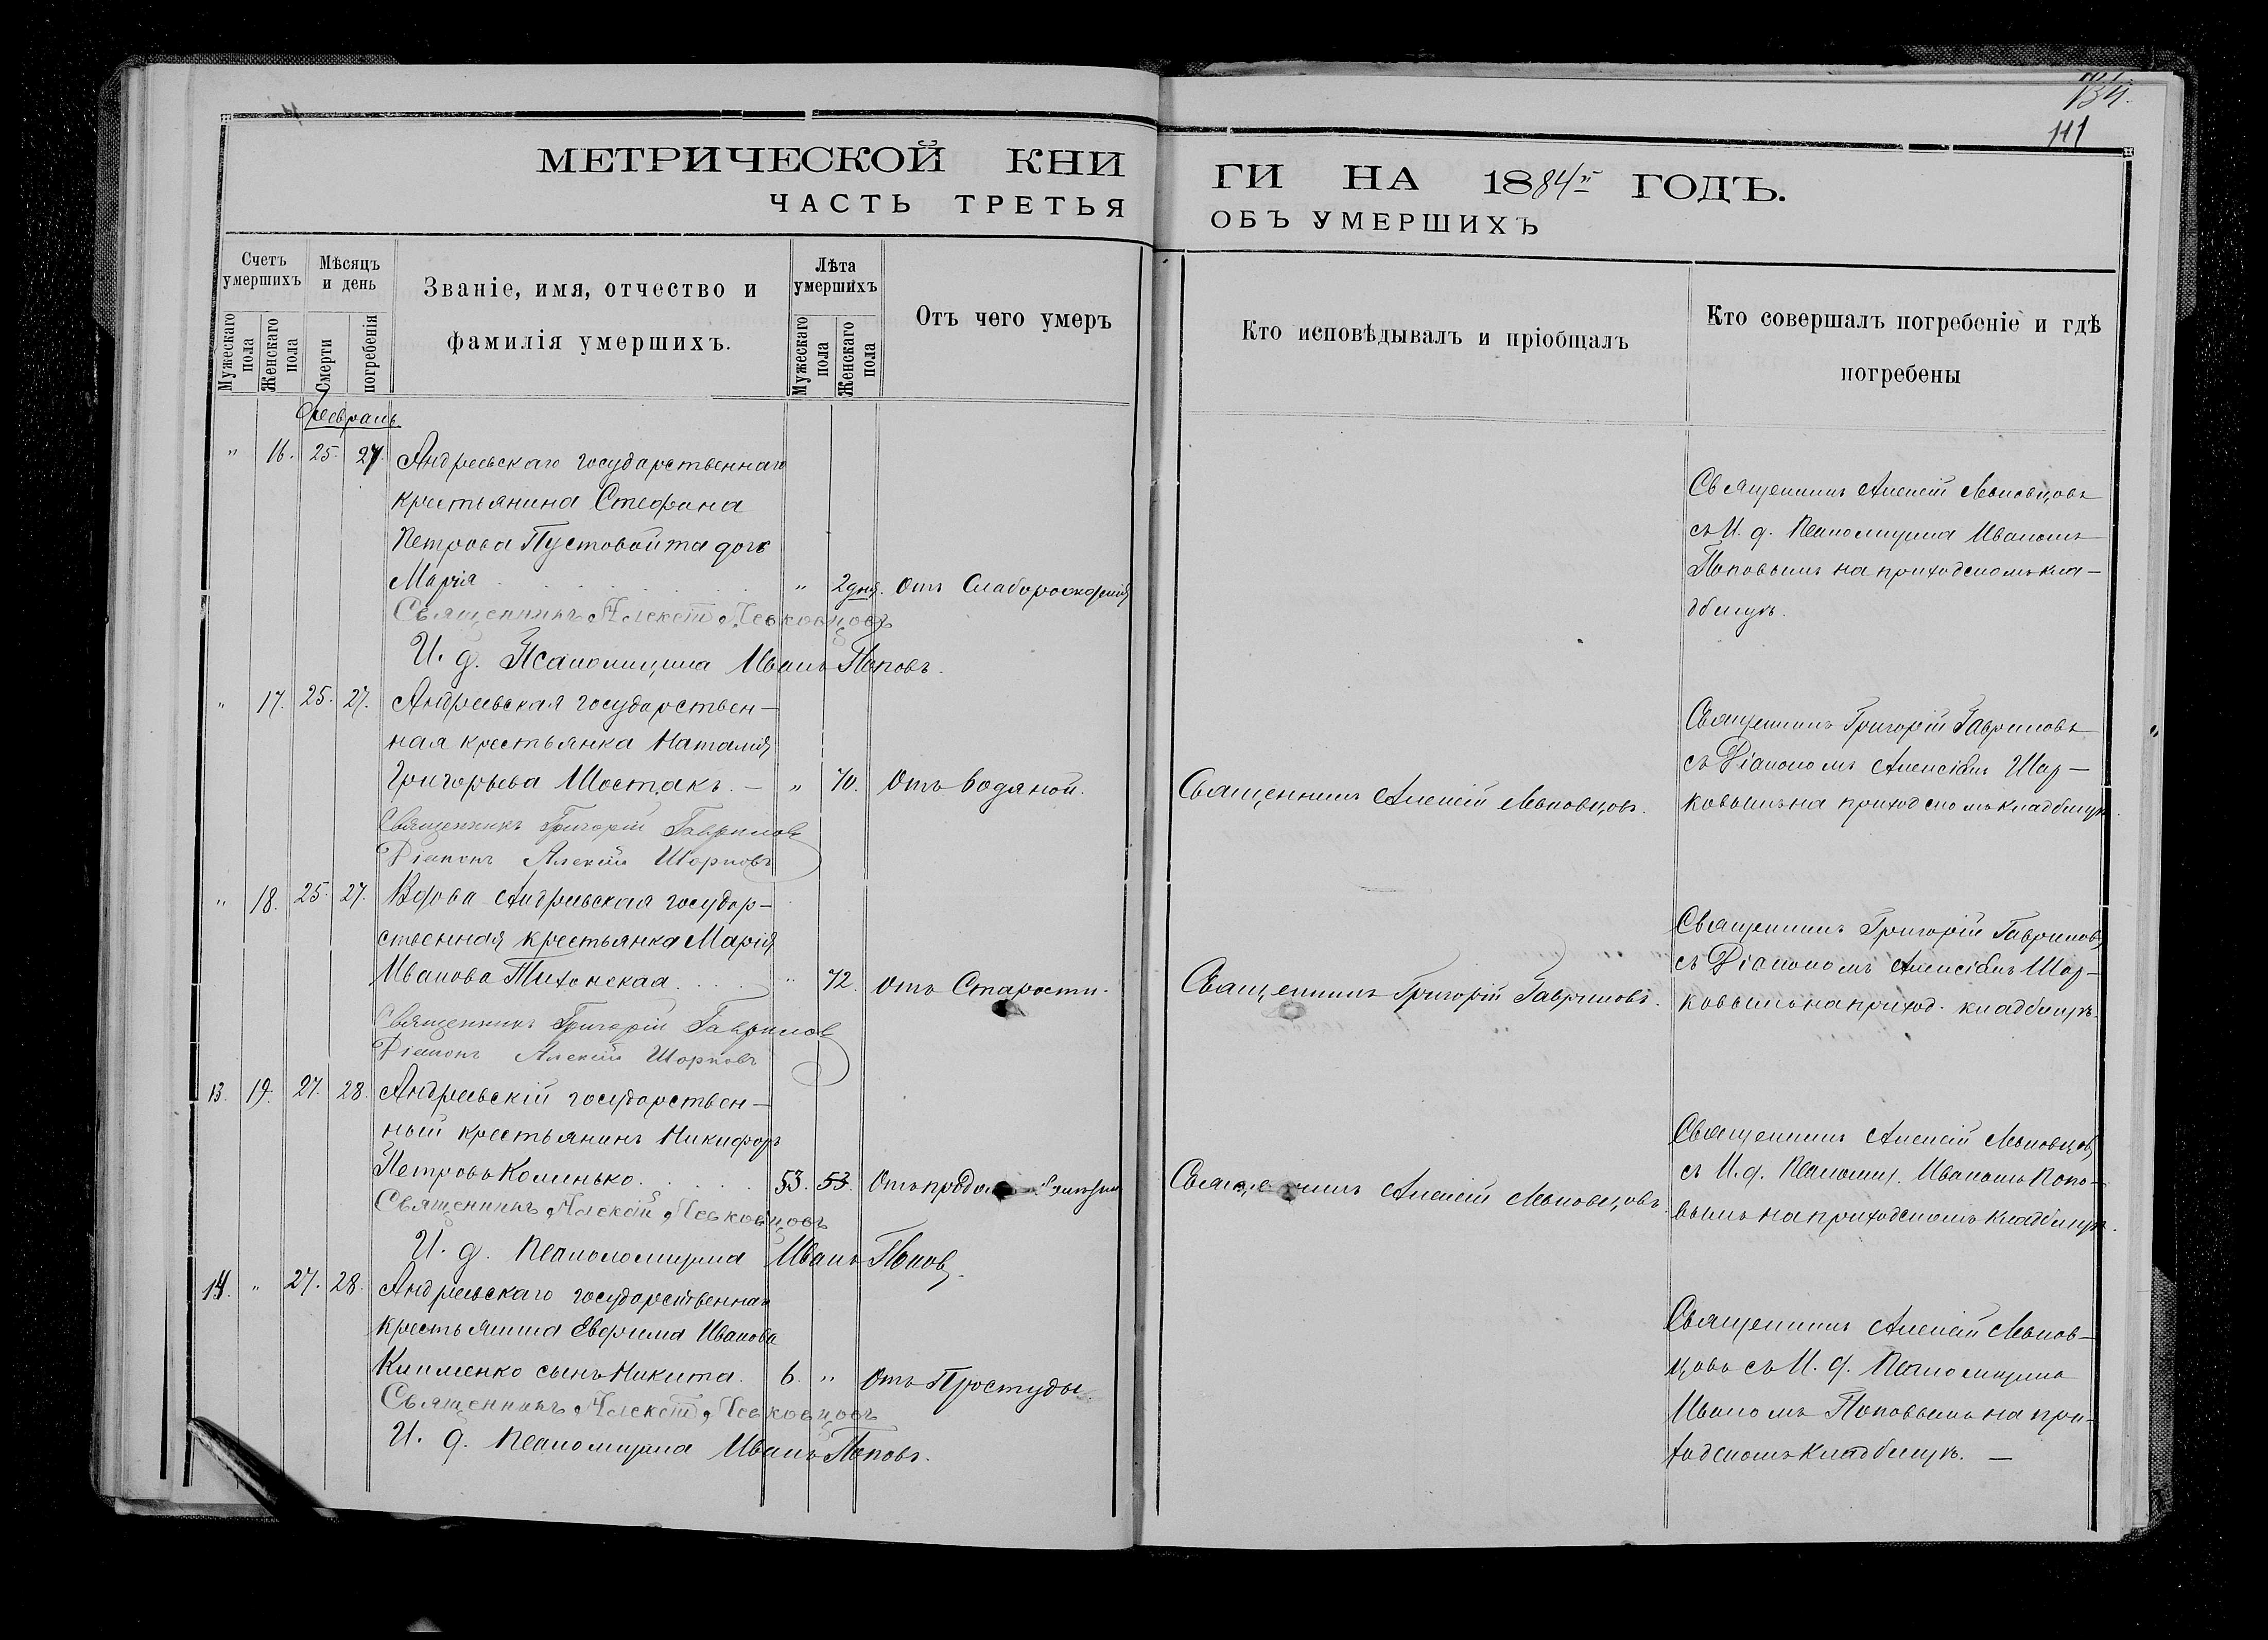 134.
111
МЕТРИЧЕСКОЙ КНИ
ГИ НА 1884й ГОДЪ.
ЧАСТЬ ТРЕТЬЯ
ОБЪ УМЕРШИХЪ
Счетъ умершихъ
Мѣсяцъ и день
Званіе, имя, отчество и фамилія умершихъ.
Лѣта умершихъ
Отъ чего умеръ
Кто исповѣдывалъ и пріобщалъ
Кто совершалъ погребеніе и гдѣ погребены
Мужескаго пола
Женскаго пола
Смерти
погребенія
Мужескаго пола
Женскаго пола
Февраль
" 16. 25. 27. Андреевскаго государственнаго
крестьянина Стефана
Петрова Пустовойта дочь
Марія " 2 дня. Отъ Слаборожденія
Священникъ Алексѣй Левковцовъ
И. д. Псаломщика Иванъ Поповъ.
Священникъ Алексій Левковцовъ
съ И. д. Псаломщика Иваномъ
Поповымъ на приходскомъ кла-
дбищѣ.
" 17. 25. 27. Андреевская государствен-
ная крестьянка Наталія
Григорьева Шостакъ. - " 70. Отъ водяной. Священникъ Алексій Левковцовъ.
Священникъ Григорій Гавриловъ
Діаконъ Алексій Шарковъ
Священникъ Григорій Гавриловъ
съ Діакономъ Алексіемъ Шар-
ковымъ на приходскомъ кладбищѣ.
" 18. 25. 27. Вдова Андреевская государ-
ственная крестьянка Марія
Иванова Тихонская. " 72. Отъ Старости. Священникъ Григорій Гавриловъ.
Священникъ Григорій Гавриловъ
Діаконъ Алексій Шарковъ
Священникъ Григорій Гавриловъ
съ Діакономъ Алексіемъ Шар-
ковымъ на приход. кладбищѣ.
13. 19. 27. 28. Андреевскій государствен-
ный крестьянинъ Никифоръ
Петровъ Коминько. 53. 53. Отъ Священникъ Алексій Левковцовъ.
Священникъ Алексѣй Левковцовъ
И. д. Псаломщика Иванъ Поповъ.
Священникъ Алексій Левковцовъ
съ И. д. Псаломщ. Иваномъ Попо-
вымъ на приходскомъ кладбищѣ.
14. " 27. 28. Андреевскаго государственнаго
крестьянина Евфима Иванова
Клименко сынъ Никита. 6. " Отъ Простуды.
Священникъ Алексѣй Левковцовъ
И. д. Псаломщика Иванъ Поповъ.
Священникъ Алексій Левков-
цовъ съ И. д. Псаломщика
Иваномъ Поповымъ на при-
ходскомъ кладбищѣ. -